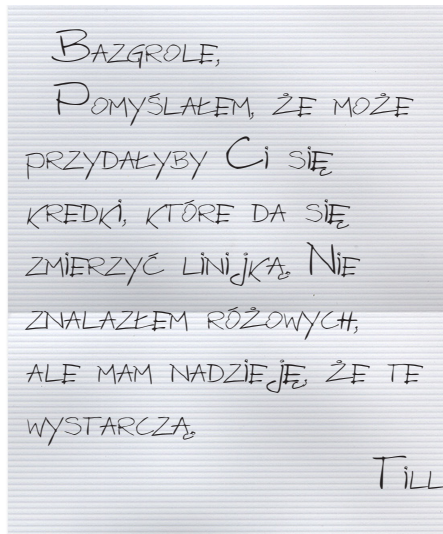 Bazgrole,
Pomyślałem, że może
przydałyby Ci się
kredki, które da się
zmierzyć linijką. Nie
znalazłem różowych,
ale mam nadzieję, że te
wystarczą.
Till